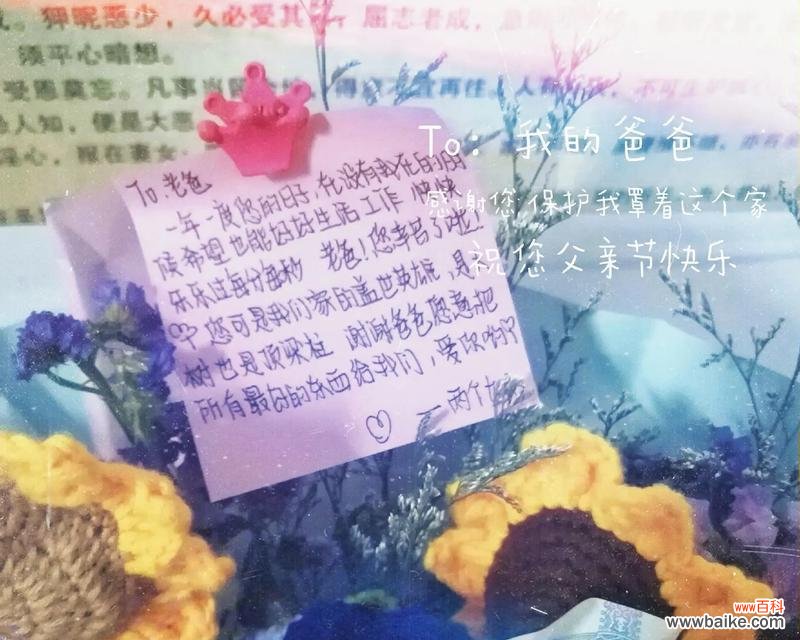 狎昵恶少，久必受其
屈志老成，急
须平心暗想。
受恩莫忘。凡事当留
得意不宜再往。人有
人知，便是大恶
淫心，报在妻女
To: 我的爸爸
感谢您,保护我罩着这个家
祝您父亲节快乐
To 老爸
一年一度您的日子,在没有我在的旧
候希望也能好好生活工作 快快
乐乐过每分每秒 老爸！您辛苦了啦！
您可是我们家的盖世英雄 是
树也是顶梁柱 谢谢爸爸您总把
所有最好的东西给我们，爱你哟
一两个
www.百科
www.baike.com